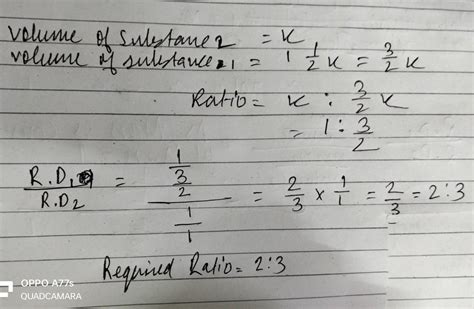 volume of Substance 2 = x
volume of substance 1 = 1 1/2 x = 3/2 x
Ratio = x : 3/2 x
= 1 : 3/2
R.D1 / R.D2 = (1 / (3/2)) / (1/1) = 2/3 × 1/1 = 2/3 = 2:3
Required Ratio = 2:3
OPPO A77s
QUADCAMARA